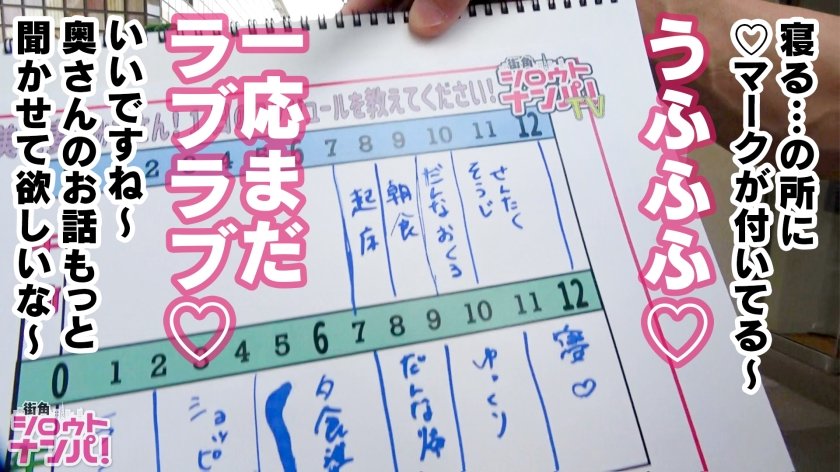 寝る…の所に
♡マークが付いてる〜
うふふふ♡
一応まだ
ラブラブ♡
いいですね〜
奥さんのお話もっと
聞かせて欲しいな〜
街角
シロウト
ナンパ!
TV
ュールを教えてください!
7 8 9 10 11 12
起床
朝食
だんなおくる
せんたく
そうじ
0 1 2 3 4 5 6 7 8 9 10 11 12
ショッピ
夕食
だんな帰
ゆっくり
寝♡
街角
シロウト
ナンパ!